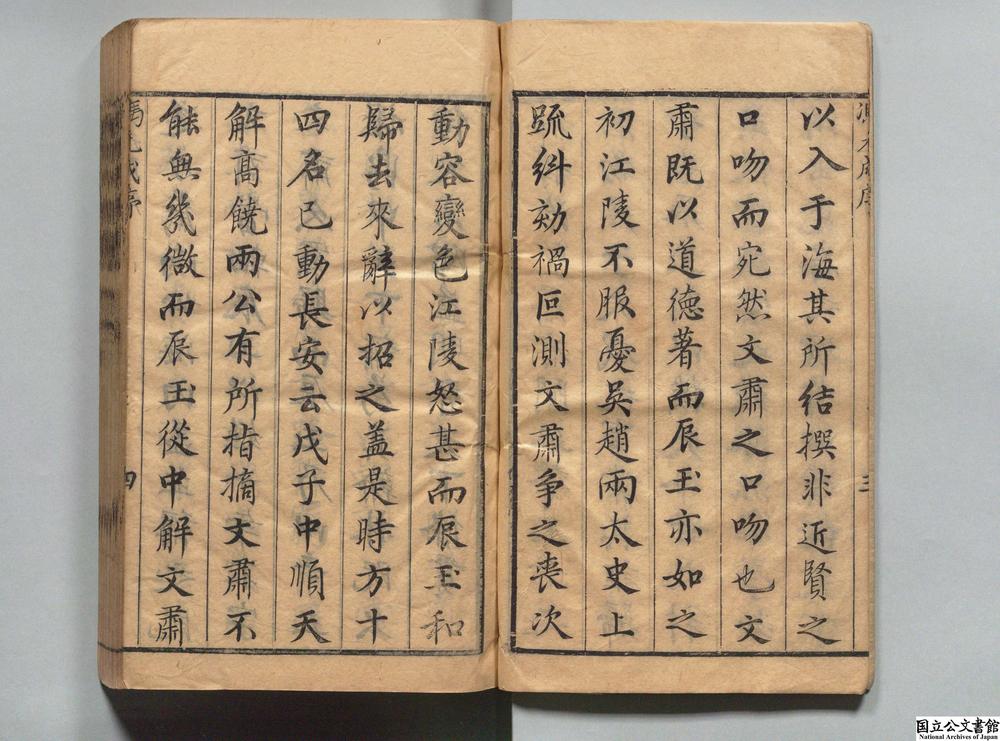 以入于海其所结撰非近賢之
口吻而宛然文肅之口吻也文
肅既以道德著而辰玉亦如之
初江陵不服憂吳趙兩太史上
疏糾劾禍叵測文肅争之喪次
三
動容變色江陵怒甚而辰玉和
歸去來辭以招之盖是時方十
四名已動長安云戊子中順天
解高饒兩公有所指摘文肅不
能無㡬微而辰玉從中解文肅
四
国立公文書館
National Archives of Japan